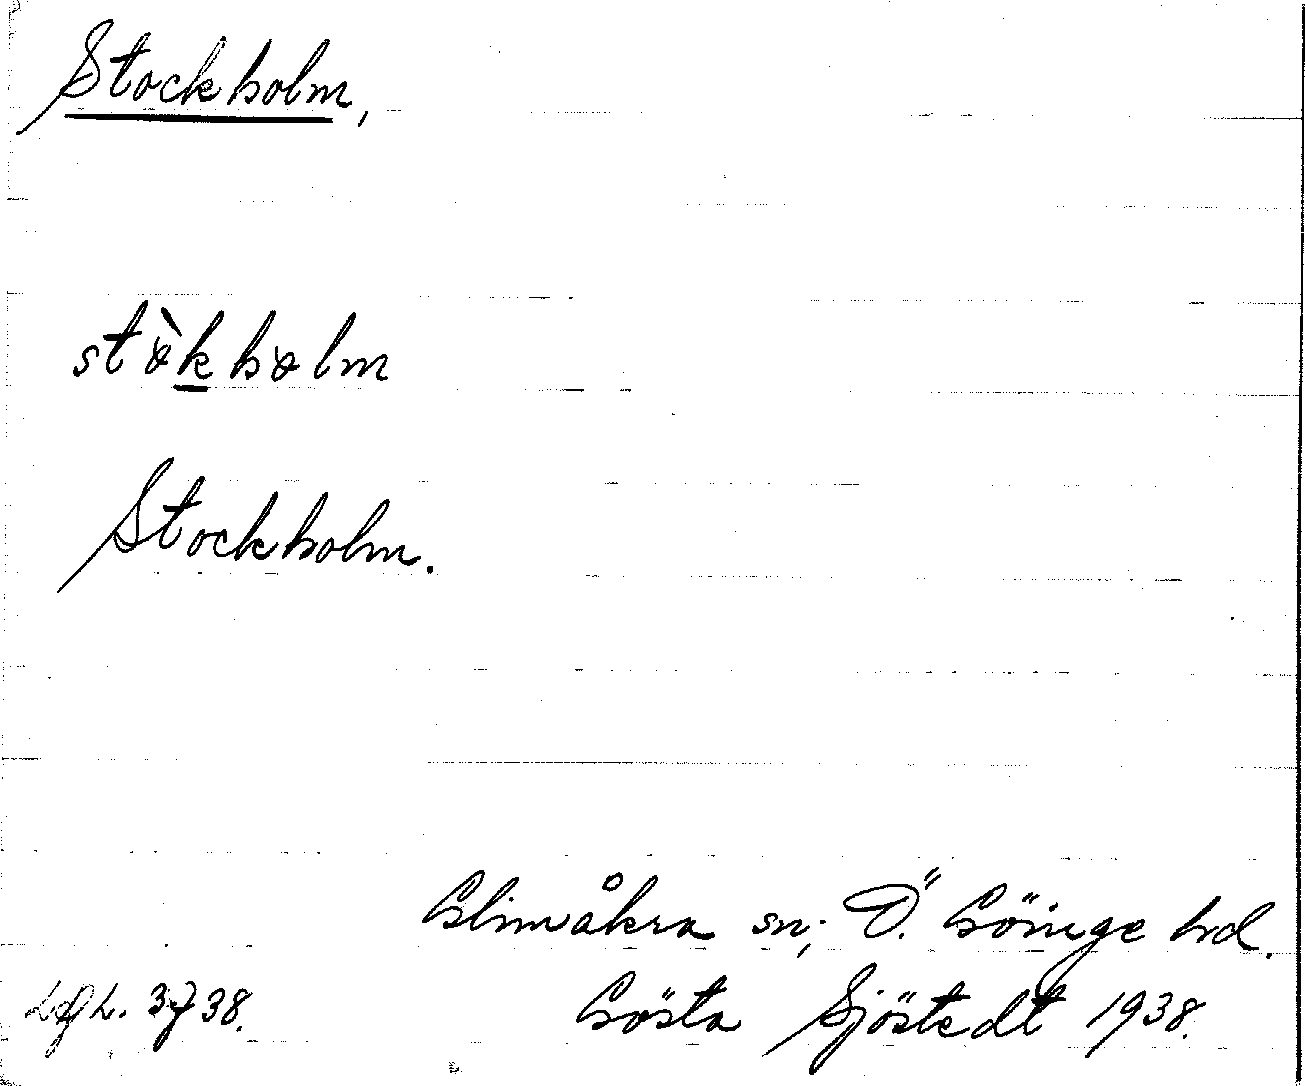 Stockholm,
stòkholm
Stockholm.
Glimåkra sn; Ö. Göinge hd.
Gösta Sjöstedt 1938.